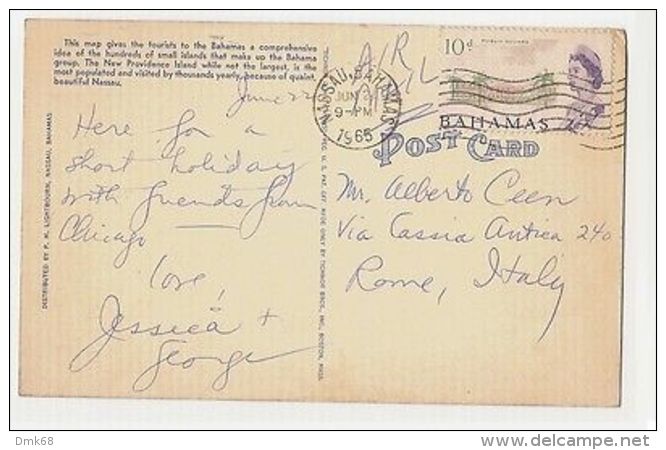 This map gives the tourists to the Bahamas a comprehensive
idea of the hundreds of small islands that make up the Bahama
group. The New Providence Island while not the largest, is the
most populated and visited by thousands yearly, because of quaint,
beautiful Nassau.
June 22
Here for a
short holiday
with friends from
Chicago
Love,
Jessica +
George
DISTRIBUTED BY P. H. LIGHTBOURN, NASSAU, BAHAMAS
MADE ONLY BY TICHNOR BROS., INC., BOSTON, MASS.
AIR
MAIL
NASSAU, BAHAMAS
JUN
9-PM
1965
10d
PUBLIC SQUARE
BAHAMAS
POST CARD
Mr. Alberto Ceen
Via Cassia Antica 240
Rome, Italy
Dmk68
delcampe.net